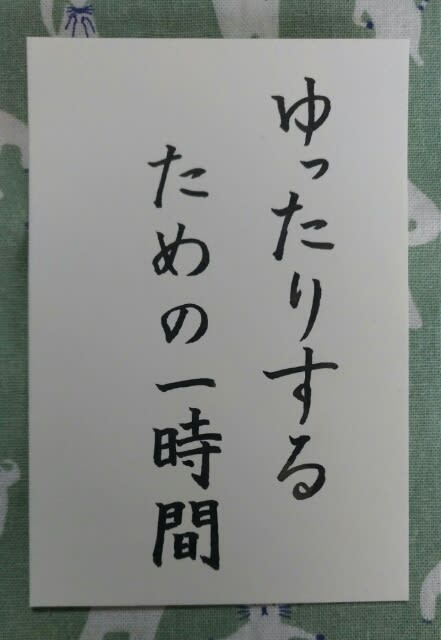 ゆったりする
ための一時間